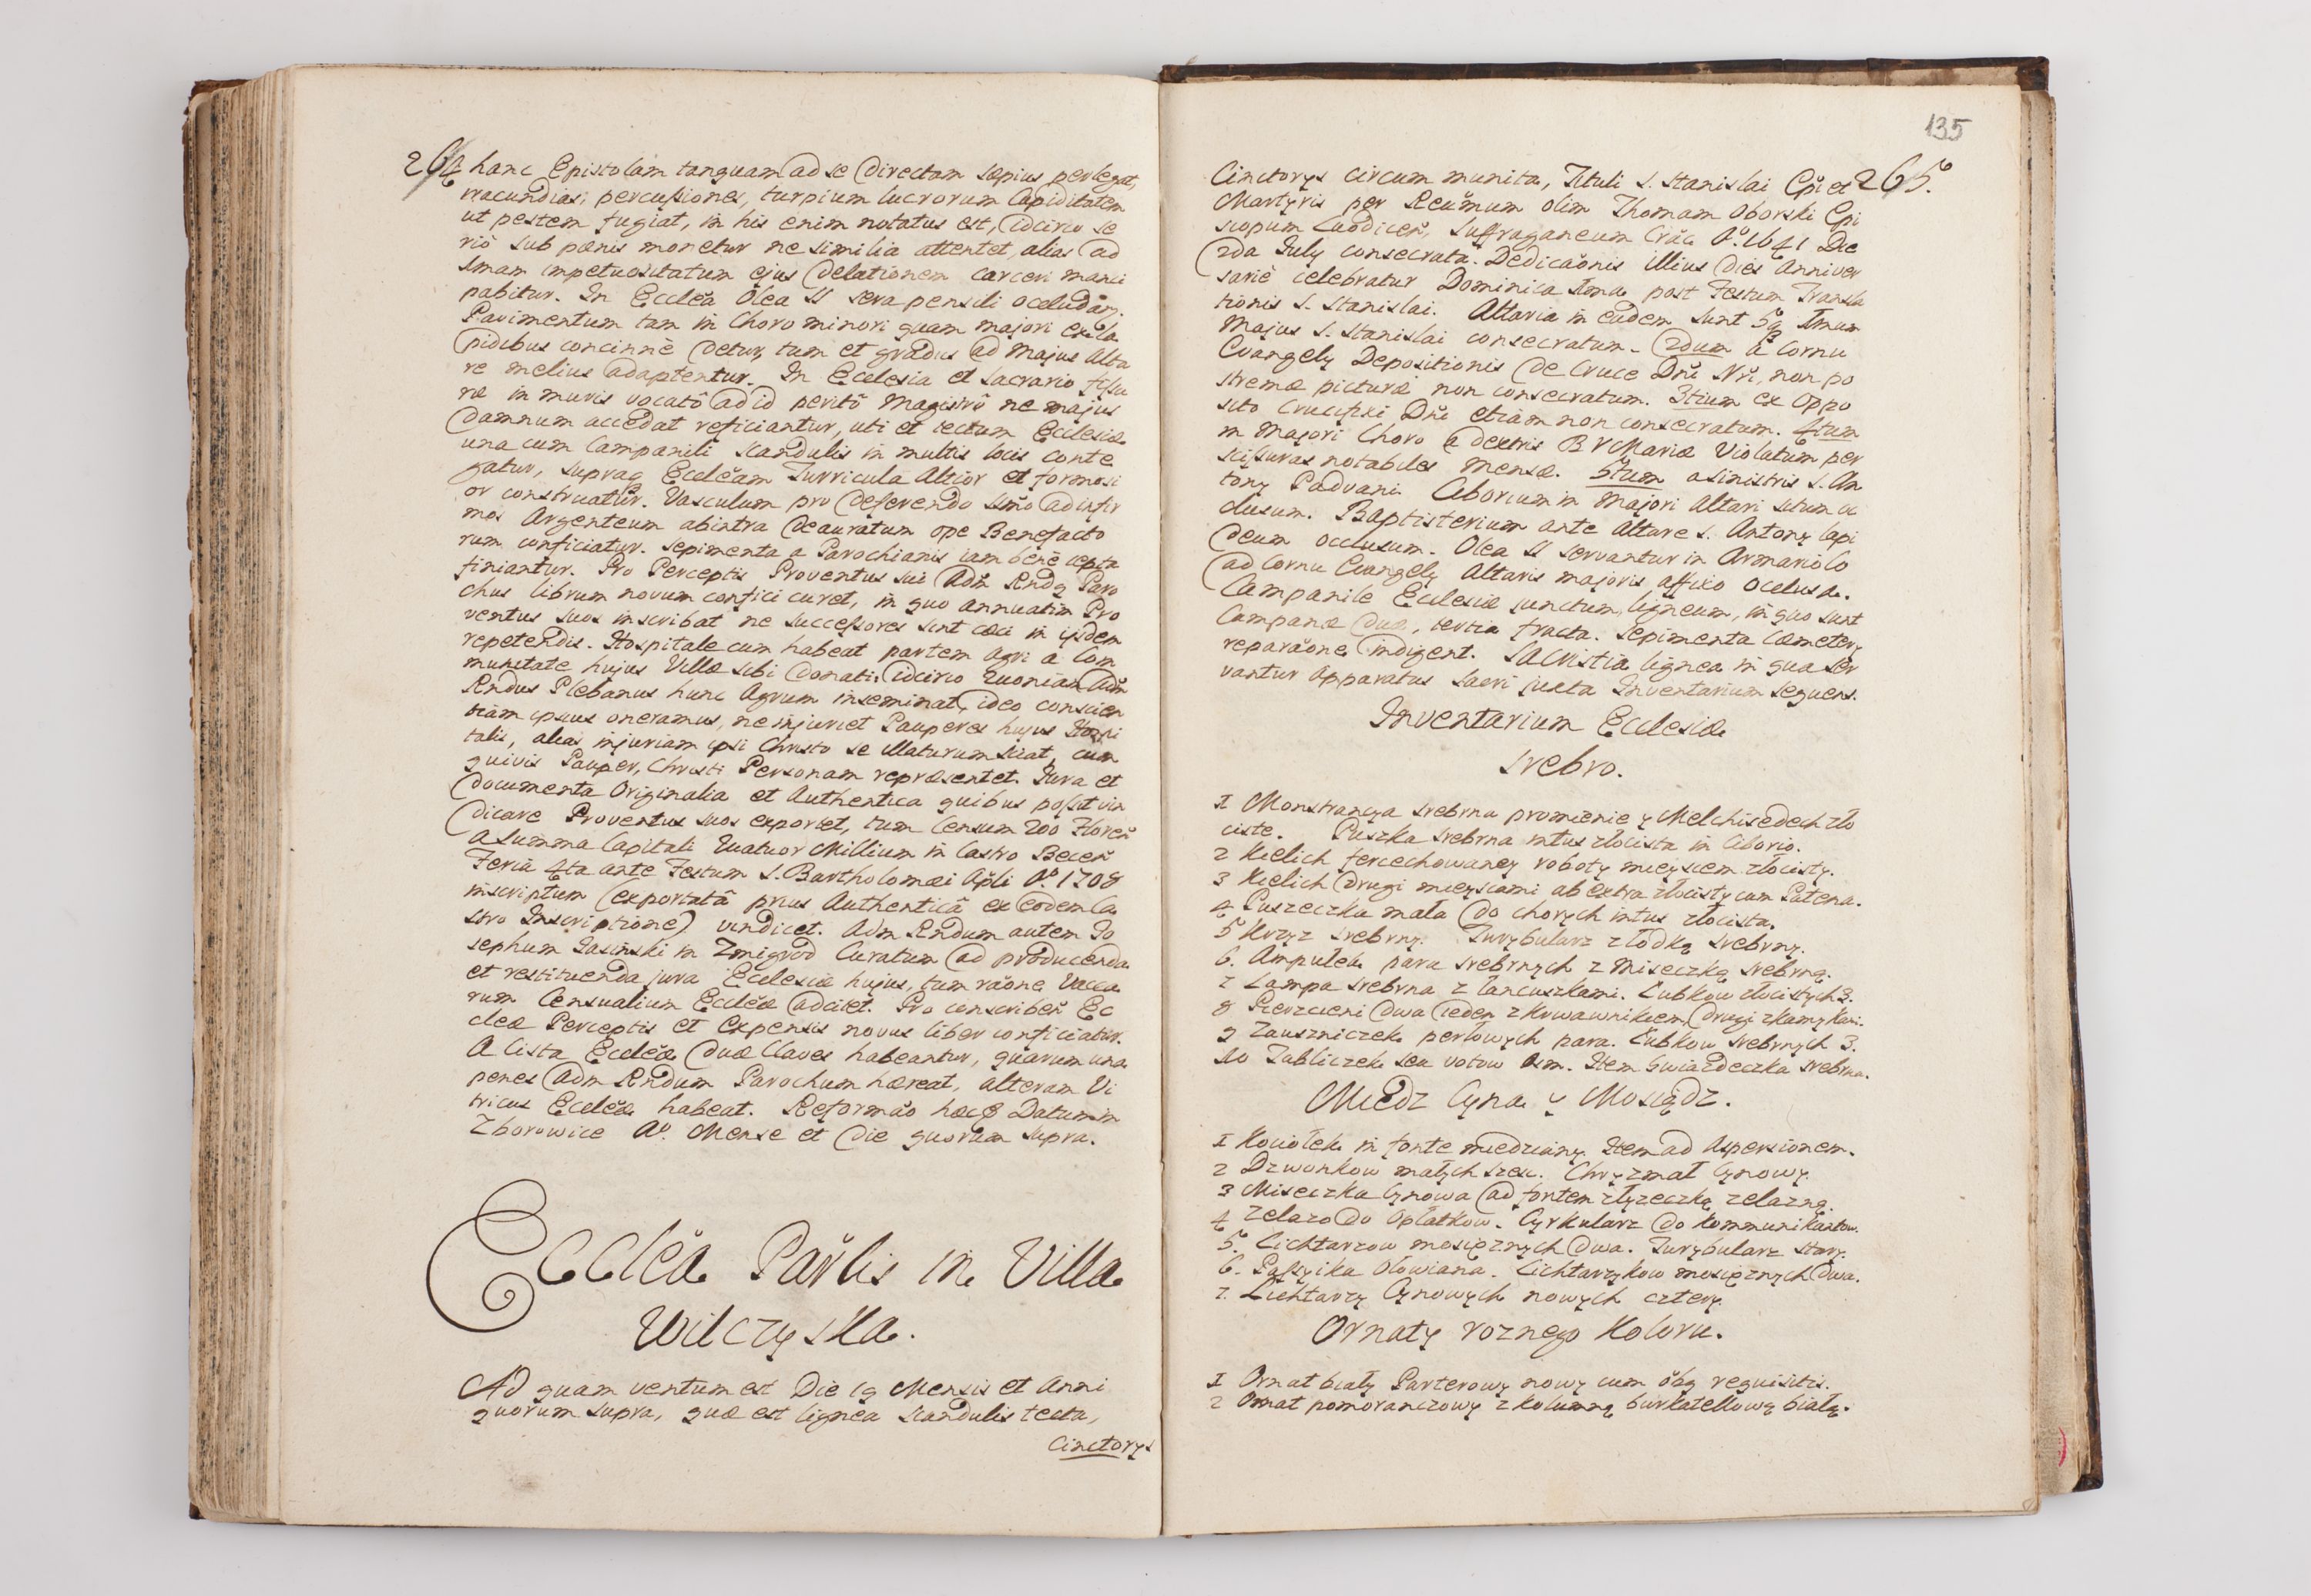 264 hanc Epistolam tanquam ad se directam sæpius perlegat,
iracundias, percussiones, turpium lucrorum Capiditatem
ut pestem fugiat, in his enim notatus est, idcirco se
riò sub pænis monetur ne similia attentet, alias ad
1mam impetuositatum ejus delationem carceri manci
pabitur. In Ecclĕa Olea SS sera pensili occludãr.
Pavimentum tam in Choro minori quam majori ex la
pidibus concinnè detur, tum et gradus ad Majus Alta
re melius adaptentur. In Ecclesia et Sacrario fissu
ræ in muris vocatô ad id peritô Magistrô ne majus
damnum accedat reficiantur, uti et tectum Ecclesiæ
una cum Campanili scandulis in multis locis conte
gatur, supraq Ecclĕam Turricula Altior et formosi
or construatur. Vasculum pro deferendo SSmo ad infir
mos Argenteum abintra deauratum ope Benefacto
rum conficiatur. Sepimenta a Parochianis iam benè cæpta
finiantur. Pro Perceptis Proventus sui Adm Rndq Paro
chus librum novum confici curet, in quo annuatim Pro
ventus suos inscribat ne successores sint cæci in ijsdem
repetendis. Hospitale cum habeat partem Agri a Com
munitate hujus Villæ sibi donati, idcirco quoniam Adm
Rndus Plebanus hunc Agrum inseminat, ideo conscien
tiam ipsius oneramus, ne injuriet Pauperes hujus Hospi
talis, alias injuriam ipsi Christo se illaturum sciat, cum
quivis Pauper, Christi Personam repræsentet. Jura et
documenta Originalia et Authentica quibus possit vin
dicare Proventus suos exportet, tum Censum 200 Floreñ
a Summa Capitali Quatuor Millium in Castro Beceñ
Feria 4ta ante Festum S. Bartholomæi Apli Aº 1708
inscriptum (exportatâ prius Authenticâ ex eodem Ca
stro Inscriptione) vindicet. Adm Rndum autem Jo
sephum Jasiński in Zmigrod Curatum ad producenda
et restituenda jura Ecclesiæ hujus, tum răone Vacca
rum Censualium Ecclĕæ adcitet. Pro conscribeñ Ec
clĕæ Perceptis et Expensis novus liber conficiatur.
A Cista Ecclĕæ duæ Claves habeantur, quarum una
penes Adm Rndum Parochum hæreat, alteram Vi
tricus Ecclĕæ habeat. Reformăo hæc Datum in
Zborowice Aº. Mense et die quorum supra.
Ecclĕa Parlis in Villa
Wilczyska.
Ad quam ventum est Die 19 Mensis et Anni
quorum supra, quæ est lignea scandulis tecta,
Cinctorys
135
Cinctorys circum munita, Tituli S. Stanislai Epi et 265.
Martyris per Reuĕmum olim Thomam Oborski Epi
scopum Laodiceñ, Suffraganeum Crac Aº. 1641 Die
2da July consecrata. Dedicăonis illius dies Anniver
sariè celebratur Dominica 1ma post Festum Transla
tionis S. Stanislai. Altaria in eadem sunt 5q 1mum
Majus S. Stanislai consecratum. 2dum a Cornu
Evangely Depositionis de Cruce Dñi Nri, non po
stremæ picturæ non consecratum. 3tium ex Oppo
sito Crucifixi Dñi etiam non consecratum. 4tum
in Majori Choro a dextris B V Mariæ Violatum per
scissuras notabiles Mensæ. 5tum a sinistris S. An
tony Padvani. Ciborium in Majori Altari situm oc
clusum. Baptisterium ante Altare S. Antony lapi
deum occlusum. Olea SS servantur in Armariolo
ad Cornu Evangely Altaris majoris affixo occlusa.
Campanile Ecclesiæ junctum, ligneum, in quo sunt
Campanæ duæ, tertia fracta. Sepimenta Cæmetery
reparăone indigent. Sacristia lignea in qua ser
vantur Apparatus sacri juxta Inventarium sequens.
Inventarium Ecclesiæ
Srebro.
1 Monstrancya srebrna promienie y Melchisedech zło
ciste. Puszka srebrna intus złocista in Ciborio.
2 Kielich fercechowaney roboty mieyscem złocisty.
3 Kielich drugi mieyscami ab extra złocisty cum Patena.
4 Puszeczka mała do chorych intus złocista.
5 Krzyz srebrny. Turybularz z łodką srebrny.
6. Ampułek para srebrnych z Miseczką srebrną.
7 Lampa srebrna z łancuszkami. Lubkow złocistych 3.
8 Pierzcieni dwa ieden z krwawnikiem, drugi z kamykami.
9 Zauszniczek perłowych para. Łubkow srebrnych 3.
10 Tabliczek seu votow osm. Item Gwiazdeczka srebrna.
Miedz Cyna y Mosiądz.
1 Kociołek in fonte miedziany. Item ad Aspersionem.
2 Dzwonkow małych szesc. Chryzmał Cynowy.
3 Miseczka Cynowa ad fontem z łyzeczką zelazną.
4 Zelazo do Opłatkow. Cyrkularz do kommunikantow.
5. Lichtarzow mosięznych dwa. Turybularz stary.
6. Passyika Ołowiana. Lichtarzykow mosięznych dwa.
7. Lichtarzy Cynowych nowych cztery.
Ornaty roznego Koloru.
1 Ornat biały Parterowy nowy cum õbq requisitis.
2 Ornat pomoranczowy z kolumną burkatellową białą.